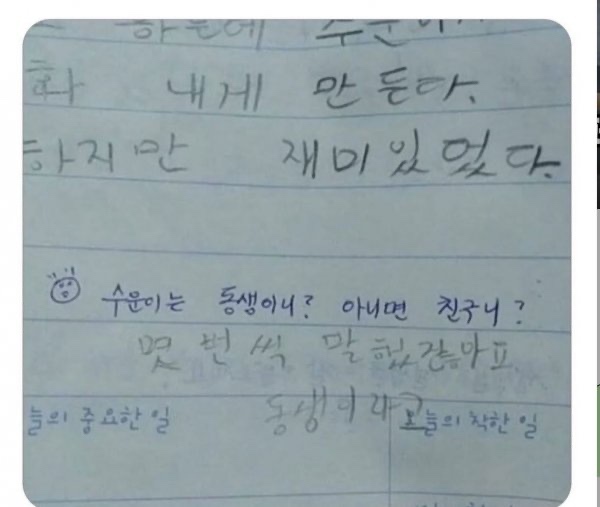 화 내게 만든다.
하지만 재미있었다.
수운이는 동생이니? 아니면 친구니?
몇 번 씩 말했잖아요
동생이라고
늘의 중요한 일 오늘의 착한 일